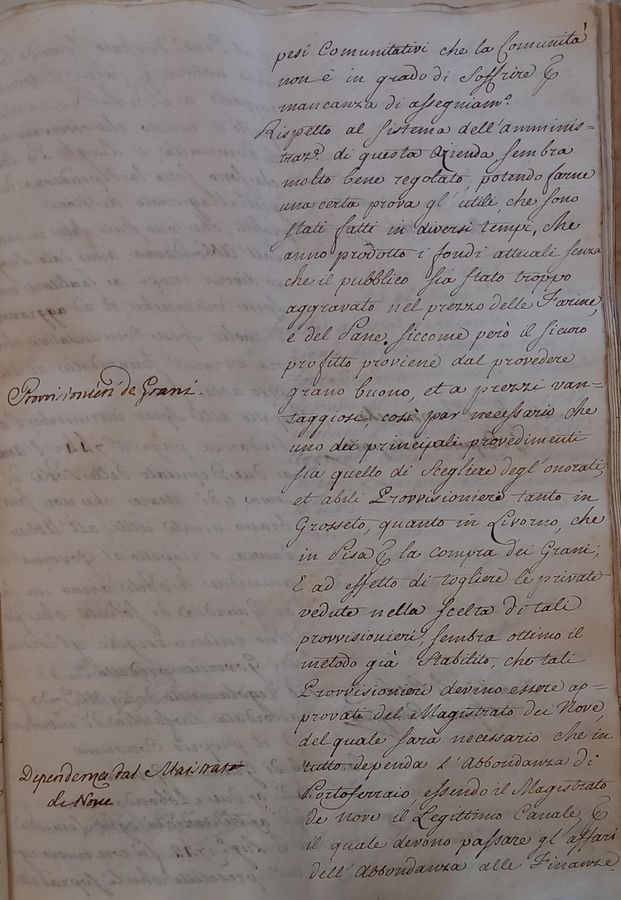 pesi Comunitativi che la Comunità
non è in grado di Soffrire p
mancanza di assegniam.º
Rispetto al sistema dell'amminis=
traz.e di questa Azienda sembra
molto bene regolato, potendo farne
una certa prova gl'utili, che sono
stati fatti in diversi tempi, che
anno prodotto i fondi attuali senza
che il pubblico sia stato troppo
aggravato nel prezzo delle Farine,
e del Pane. siccome però il sicuro
profitto proviene dal provedere
Provvisionieri de Grani.
grano buono, et a prezzi van=
taggiosi, così par necessario che
uno dei principali provedimenti
sia quello di Scegliere degl'onorati,
et abili Provvisionieri tanto in
Grosseto, quanto in Livorno, che
in Pisa p la compra dei Grani;
E ad effetto di togliere le private
vedute nella scelta di tali
provvisionieri, sembra ottimo il
metodo già Stabilito, che tali
Provvisionieri devino essere ap=
provati del Magistrato dei Nove,
del quale sarà necessario che in
Dependenza dal Maistrato
de Nove
tutto dependa l'Abbondanza di
Portoferraio essendo il Magistrato
de nove il Legittimo Canale, p
il quale devono passare gl'affari
dell'Abbondanza alle Finanze